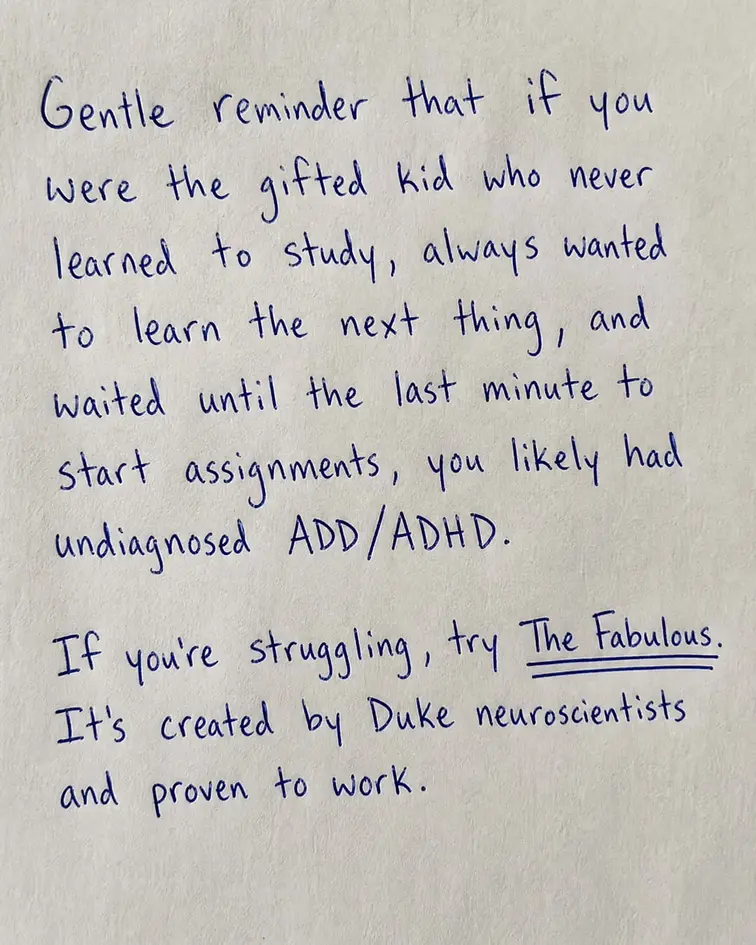 Gentle reminder that if you
were the gifted kid who never
learned to study, always wanted
to learn the next thing, and
waited until the last minute to
start assignments, you likely had
undiagnosed ADD/ADHD.
If you're struggling, try The Fabulous.
It's created by Duke neuroscientists
and proven to work.